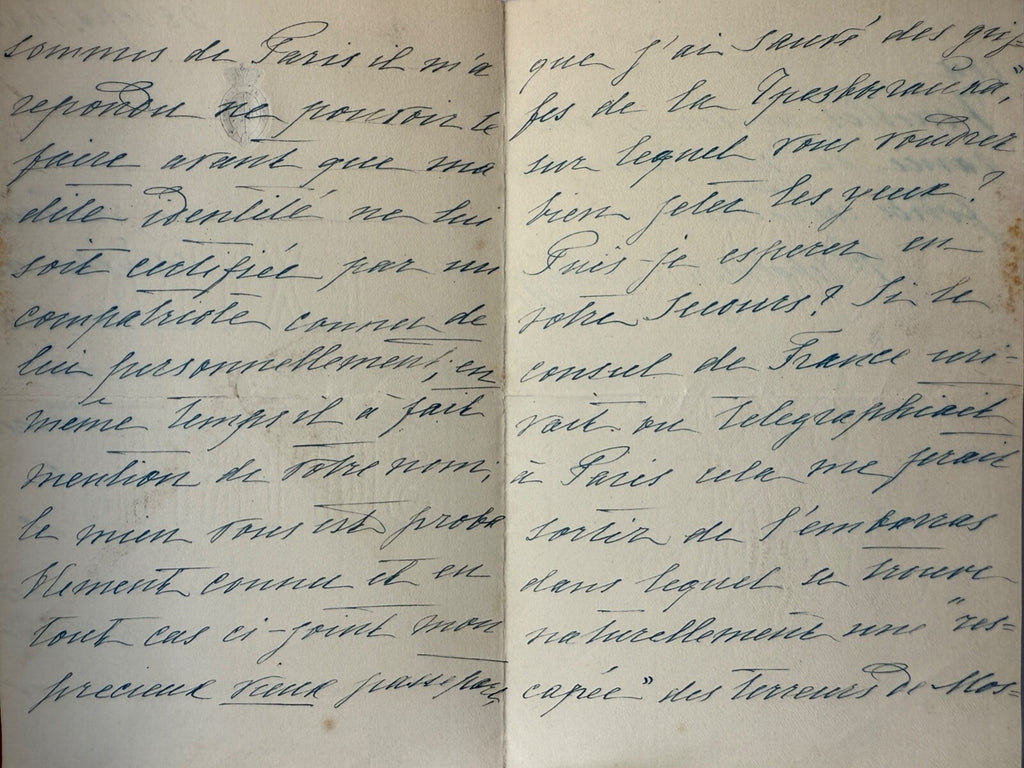 sommes de Paris il m'a
repondu ne pouvoir le
faire avant que ma
dite identité ne lui
soit certifiée par un
compatriote connu de
lui personnellement; en
même temps il a fait
mention de votre nom;
le mien vous est proba
blement connu et en
tout cas ci-joint mon
precieux vieux passeport,
que j'ai sauvé des grif-
fes de la "Чрезвычайка",
sur lequel vous voudrez
bien jeter les yeux?
Puis-je esperer en
votre secours? Si le
consul de France ecri-
vait ou telegraphiait
à Paris cela me ferait
sortir de l'embarras
dans lequel se trouve
naturellement une "res-
capée" des terreurs de Mos-